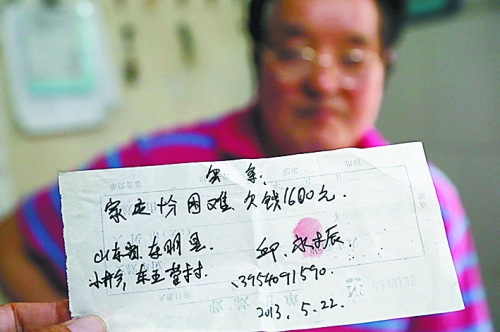 欠条.
家庭十分困难.欠钱1600元.
山东省.东明县.
小井乡,东五营村.
邱.
辰.
13954091590.
2013.5.22.